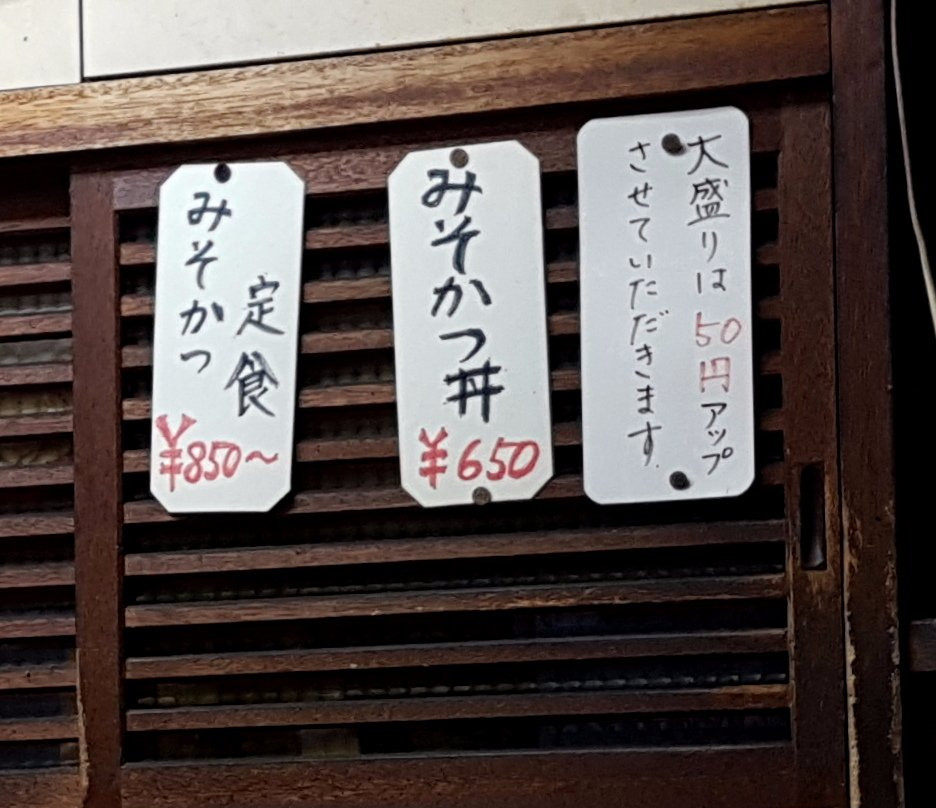 大盛りは50円アップ
させていただきます
みそかつ丼
¥650
みそかつ
定食
¥850~